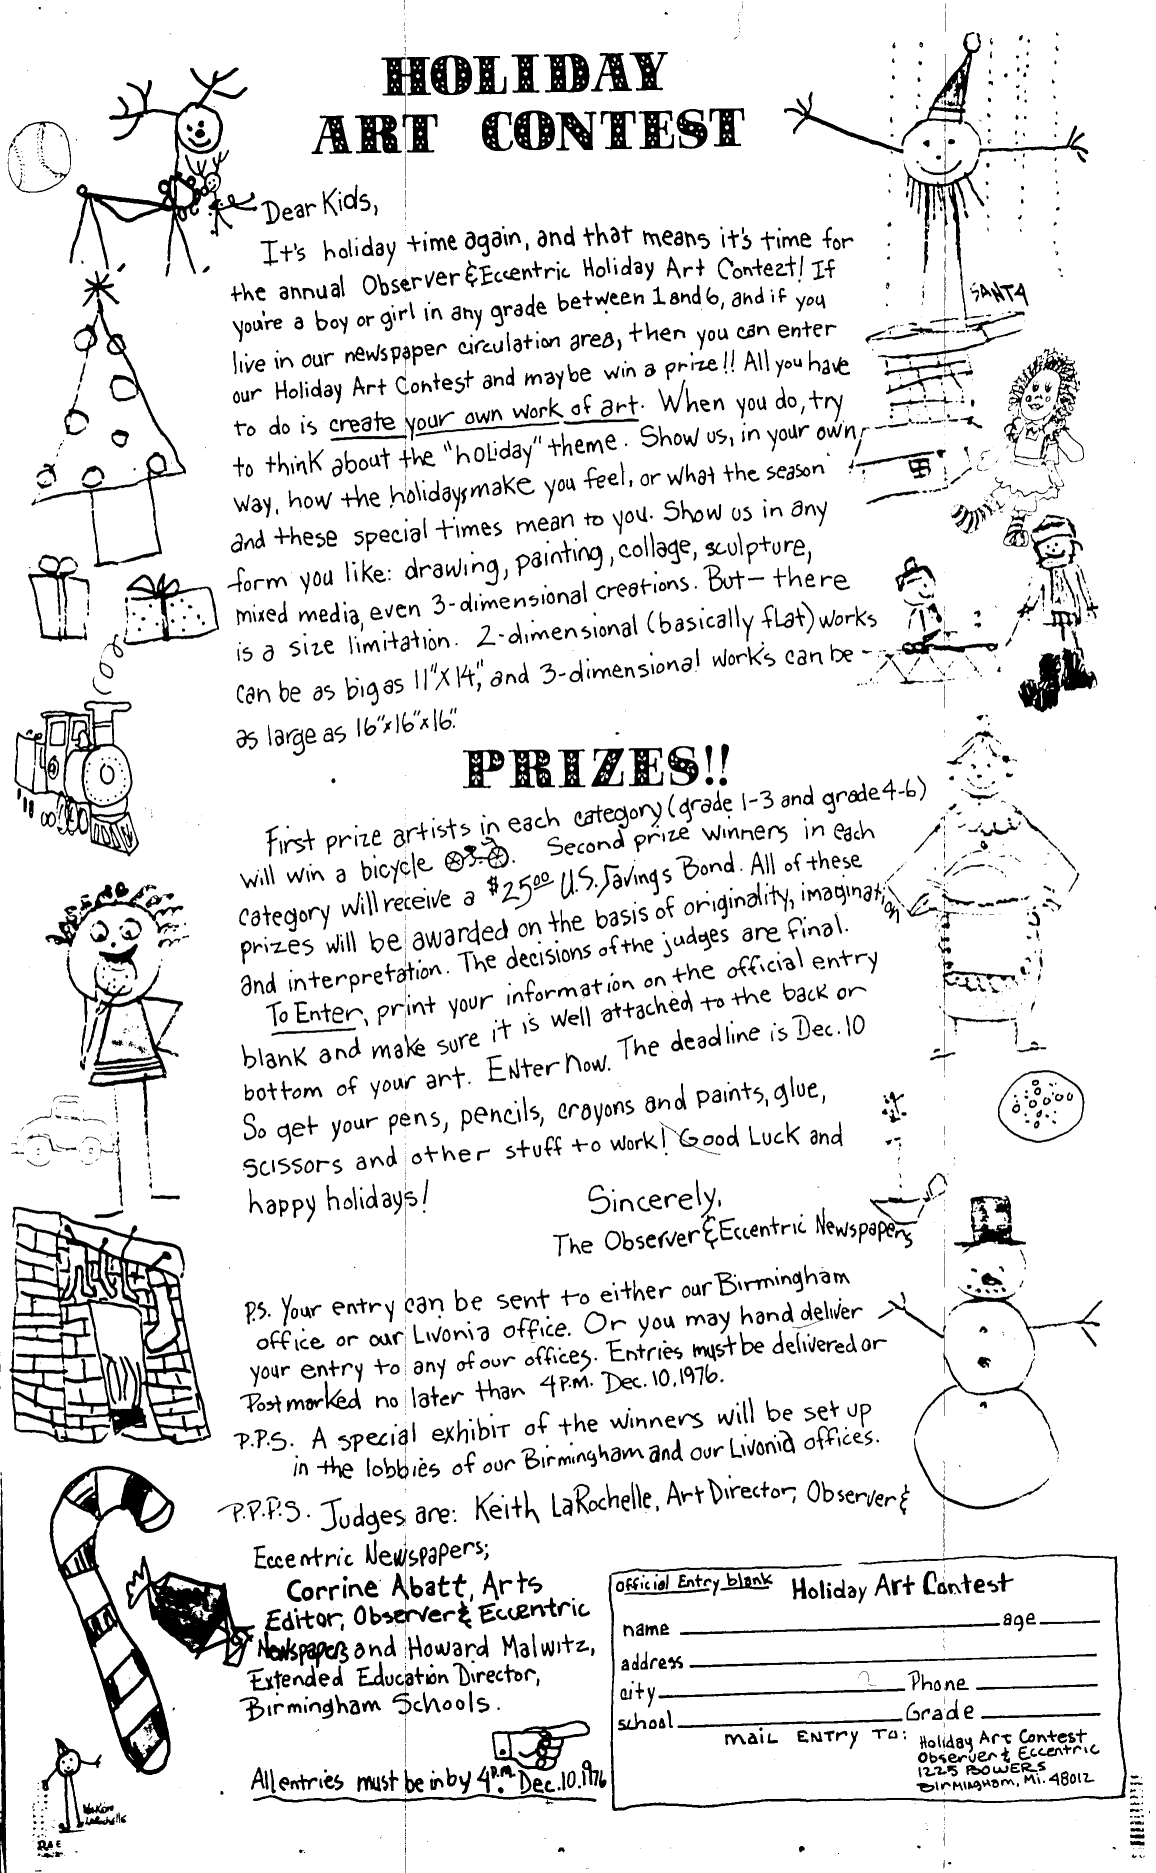 HOLIDAY
ART CONTEST
Dear Kids,
It's holiday time again, and that means it's time for
the annual Observer & Eccentric Holiday Art Contest! If
you're a boy or girl in any grade between 1 and 6, and if you
live in our newspaper circulation area, then you can enter
our Holiday Art Contest and maybe win a prize!! All you have
to do is create your own work of art. When you do, try
to think about the "holiday" theme. Show us, in your own
way, how the holidays make you feel, or what the season
and these special times mean to you. Show us in any
form you like: drawing, painting, collage, sculpture,
mixed media, even 3-dimensional creations. But — there
is a size limitation. 2-dimensional (basically flat) works
can be as big as 11"x14", and 3-dimensional works can be
as large as 16"x16"x16".
SANTA
PRIZES!!
First prize artists in each category (grade 1-3 and grade 4-6)
will win a bicycle. Second prize winners in each
category will receive a $25.00 U.S. Savings Bond. All of these
prizes will be awarded on the basis of originality, imagination
and interpretation. The decisions of the judges are final.
To Enter, print your information on the official entry
blank and make sure it is well attached to the back or
bottom of your art. Enter Now. The deadline is Dec. 10
So get your pens, pencils, crayons and paints, glue,
scissors and other stuff to work! Good Luck and
happy holidays!
Sincerely,
The Observer & Eccentric Newspapers
P.S. Your entry can be sent to either our Birmingham
office or our Livonia office. Or you may hand deliver
your entry to any of our offices. Entries must be delivered or
Postmarked no later than 4 P.M. Dec. 10, 1976.
P.P.S. A special exhibit of the winners will be set up
in the lobbies of our Birmingham and our Livonia offices.
P.P.P.S. Judges are: Keith LaRochelle, Art Director, Observer &
Eccentric Newspapers;
Corrine Abatt, Arts
Editor, Observer & Eccentric
Newspapers and Howard Malwitz,
Extended Education Director,
Birmingham Schools.
All entries must be in by 4 P.M. Dec. 10, 1976
Official Entry blank Holiday Art Contest
name age
address
city Phone
school Grade
MAIL ENTRY TO: Holiday Art Contest
Observer & Eccentric
1225 BOWERS
Birmingham, Mi. 48012
LaRochelle